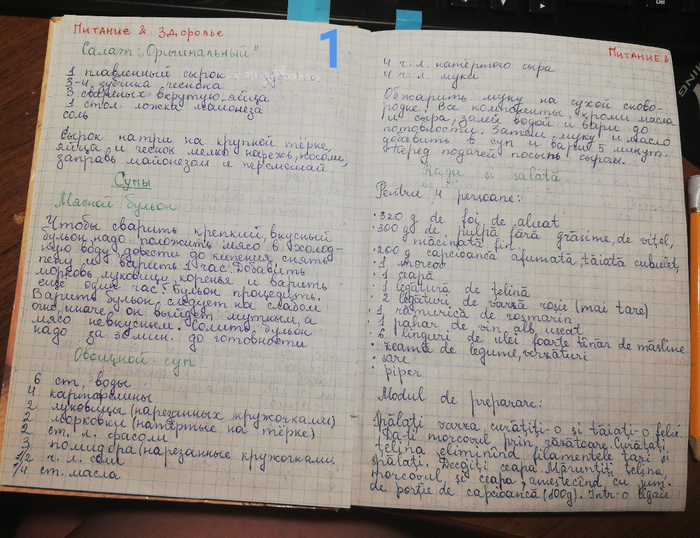 Питание & Здоровье
Салат „Оригинальный"
1
1 плавленный сырок
3-4 зубчика чеснока
3 свареных вкрутую яйца
1 стол. ложка майонеза
соль
Сырок натри на крупной тёрке,
яйца и чеснок мелко нарежь, посоли,
заправь майонезом и перемешай
Супы
Мясной бульон
Чтобы сварить крепкий, вкусный
бульон, надо положить мясо в холод-
ную воду, довести до кипения, снять
пену и варить 1 час. Добавить
морковь, луковицу, коренья и варить
еще один час. Бульон процедить.
Варить бульон следует на слабом
огне, иначе он выйдет мутным, а
мясо невкусным. Солить бульон
надо за 30 мин. до готовности
Овощной суп
6 ст. воды
4 картофелины
2 луковицы (нарезанных кружочками)
2 морковки (натёртые на тёрке)
2 ст. л. фасоли
3 помидора (нарезанные кружочками
1/2 ч. л. соли
1/4 ст. масла
Питание &
4 ч. л. натёртого сыра
4 ч. л. муки
Обжарить муку на сухой сково-
родке. Все компоненты, кроми масла
и сыра, залей водой и вари до
готовности. Затем муку и масло
добавить в суп и варить 5 минут.
Перед подачей посыпь сыром.
Ragu și salată
Pentru 4 persoane:
· 320 g de foi de aluat
· 300 g de pulpă fără grăsime, de vițel,
măcinată fin.
· 200 g capcioancă afumată, tăiată cubulețe,
· 1 morcov
· 1 ceapă
· 1 legătură de țelină
· 2 legături de varză roșie (mai tare)
· 1 rămurică de rosmarin
· 1 pahar de vin alb, uscat
· 6 linguri de ulei foarte tînăr de măsline
· zeamă de legume, vărzături
· sare
· piper
Modul de preparare:
Spălați varza, curățiți-o și tăiați-o felii.
Dați morcovul prin răzătoare. Curățați
țelina eliminînd filamentele tari și
spălați. Decojiți ceapa. Mărunțiți țelina,
morcovul și ceapa, amestecînd cu jum.
de porție de capcioancă (100g). Într-o tigaie